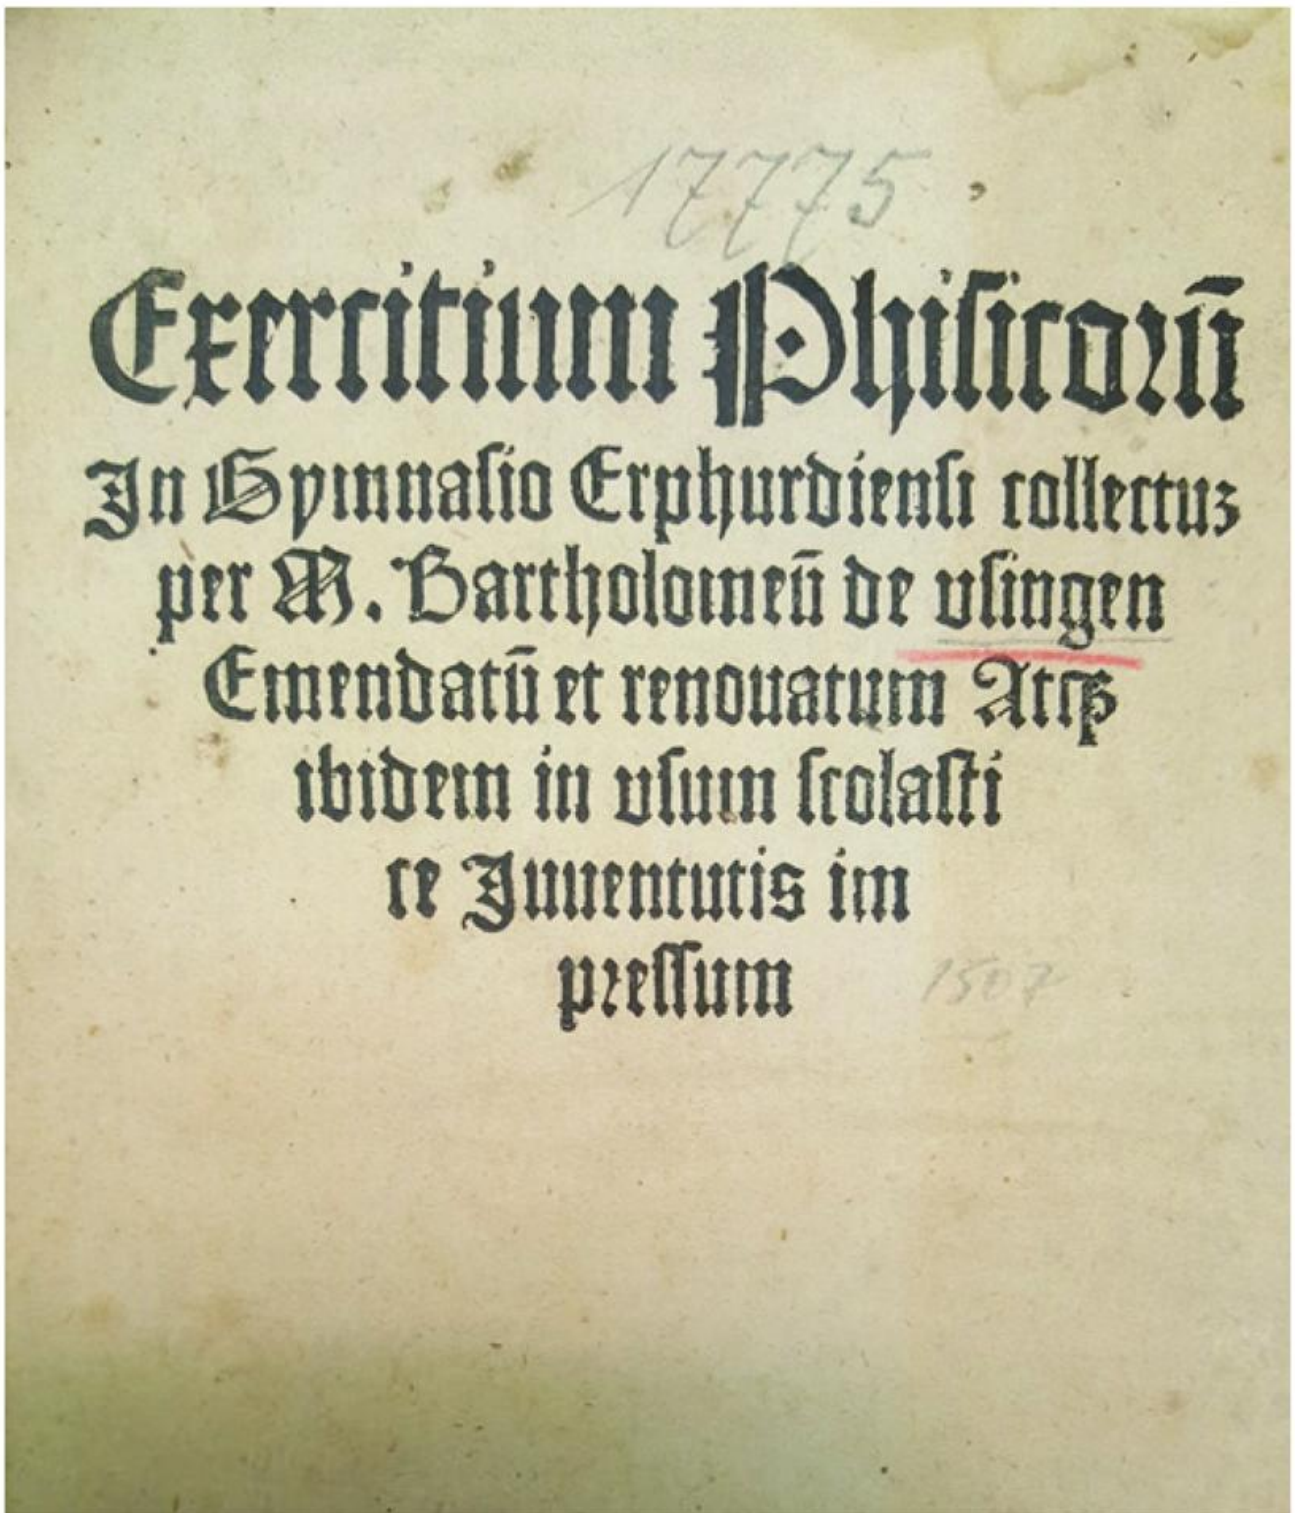 17775
Exercitium Phisicorū
In Gymnasio Erphurdiensi collectuz
per M. Bartholomeū de vsingen
Emendatū et renouatum Atqꝫ
ibidem in vsum scolasti
ce Iuuentutis im
pressum
1507